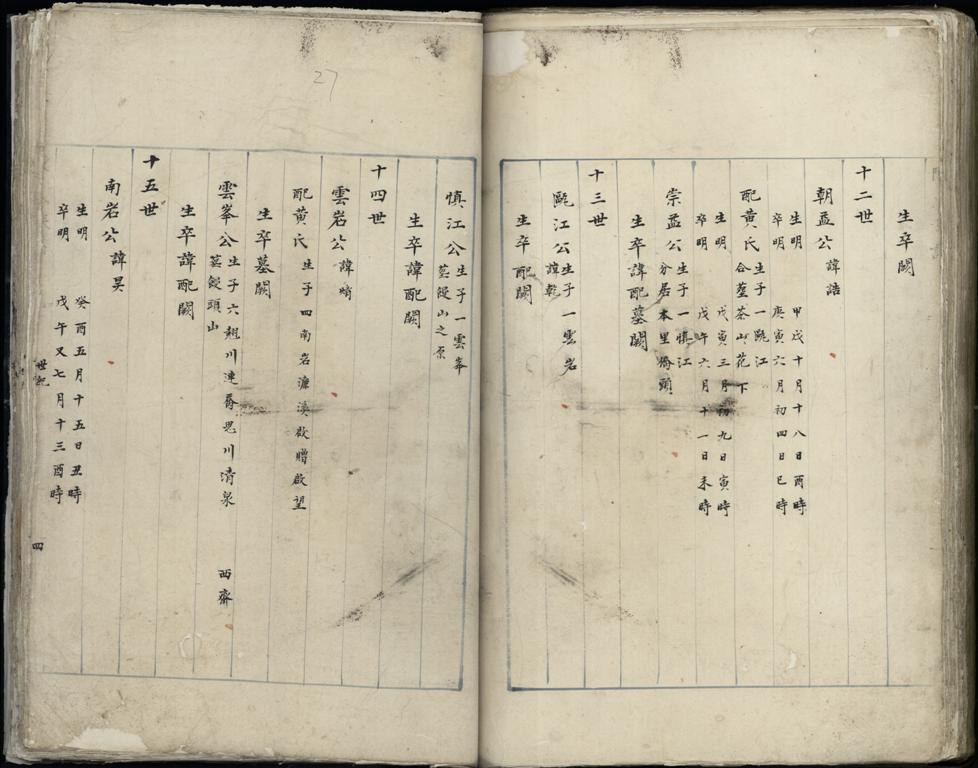 生卒闕
十二世
朝孟公諱誥
生明 甲戌十月十八日酉時
卒明 庚寅六月初四日巳時
配黃氏 生子一甌江
合葬茶山花下
生明 戊寅三月初九日寅時
卒明 戊午六月十一日未時
崇孟公 生子一慎江
分居本里橋頭
生卒諱配墓闕
十三世
甌江公 生子一雲岩
諱乾
生卒配闕
慎江公 生子一雲峯
葬饅山之原
生卒諱配闕
十四世
雲岩公諱
配黃氏 生子四南岩濂溪啟贈啟望
生卒墓闕
雲峯公 生子六 川連 川清泉 西齋
葬饅頭山
生卒諱配闕
十五世
南岩公諱昊
生明 癸酉五月十五日丑時
卒明 戊午又七月十三酉時
世紀
四
27